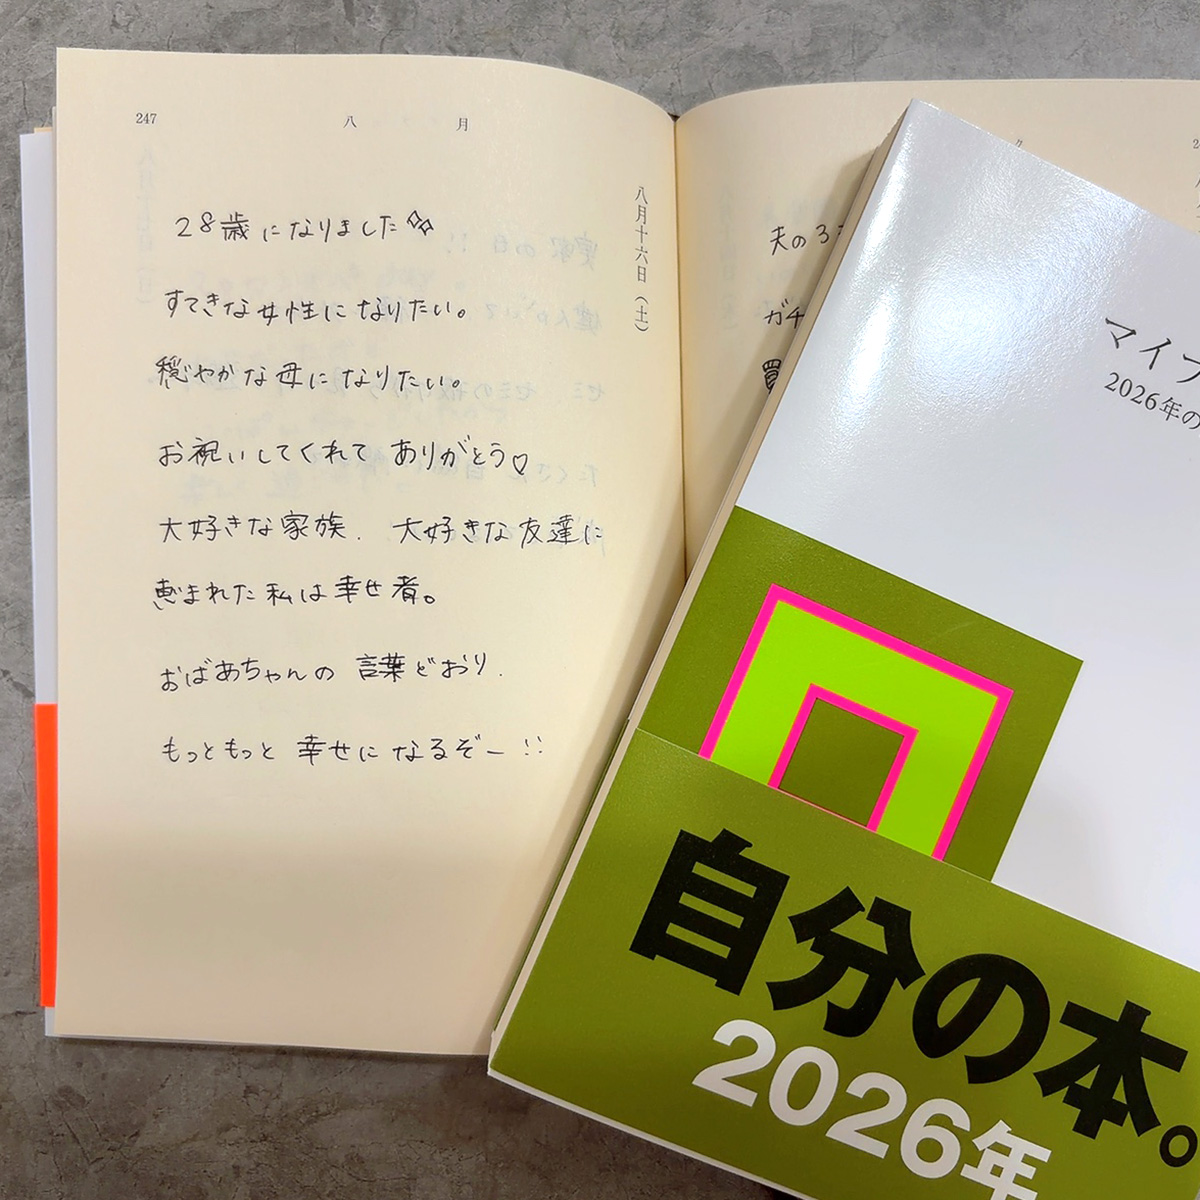 247
八月
八月十六日（土）
28歳になりました
すてきな女性になりたい。
穏やかな母になりたい。
お祝いしてくれて ありがとう♡
大好きな家族、大好きな友達に
恵まれた私は幸せ者。
おばあちゃんの 言葉どおり、
もっともっと 幸せになるぞー!!
夫の
ガチ
マイブ
2026年の
自分の本。
2026年